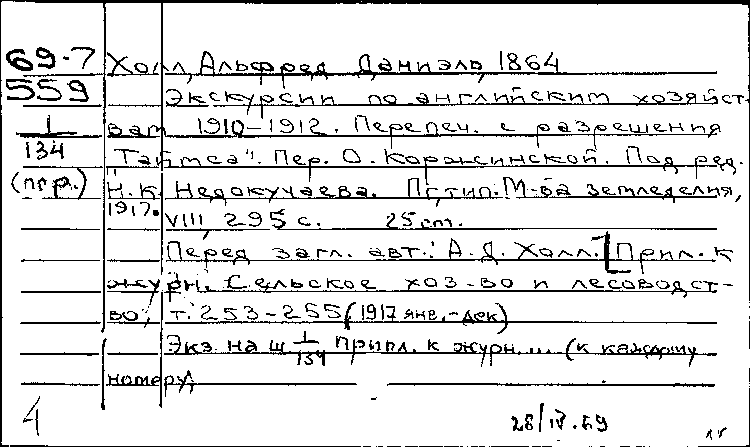 69-7 Холл, Альфред Даниэль, 1864
559 Экскурсии по английским хозяйст-
1/134 вам 1910-1912. Перепеч. с разрешения
"Таймса". Пер. О. Коржинской. Под ред.
(пгр.) Н.К. Недокучаева. Пг, тип. М-ва земледелия,
1917. VIII, 295 с. 25 cm.
Перед загл. авт.: А.Д. Холл. [Прил. к
журн. Сельское хоз-во и лесоводст-
во, т. 253-255 (1917 янв.-дек)
Экз на ш 1/134 прил. к журн.... (к каждому
номеру)
4 28/IV.69